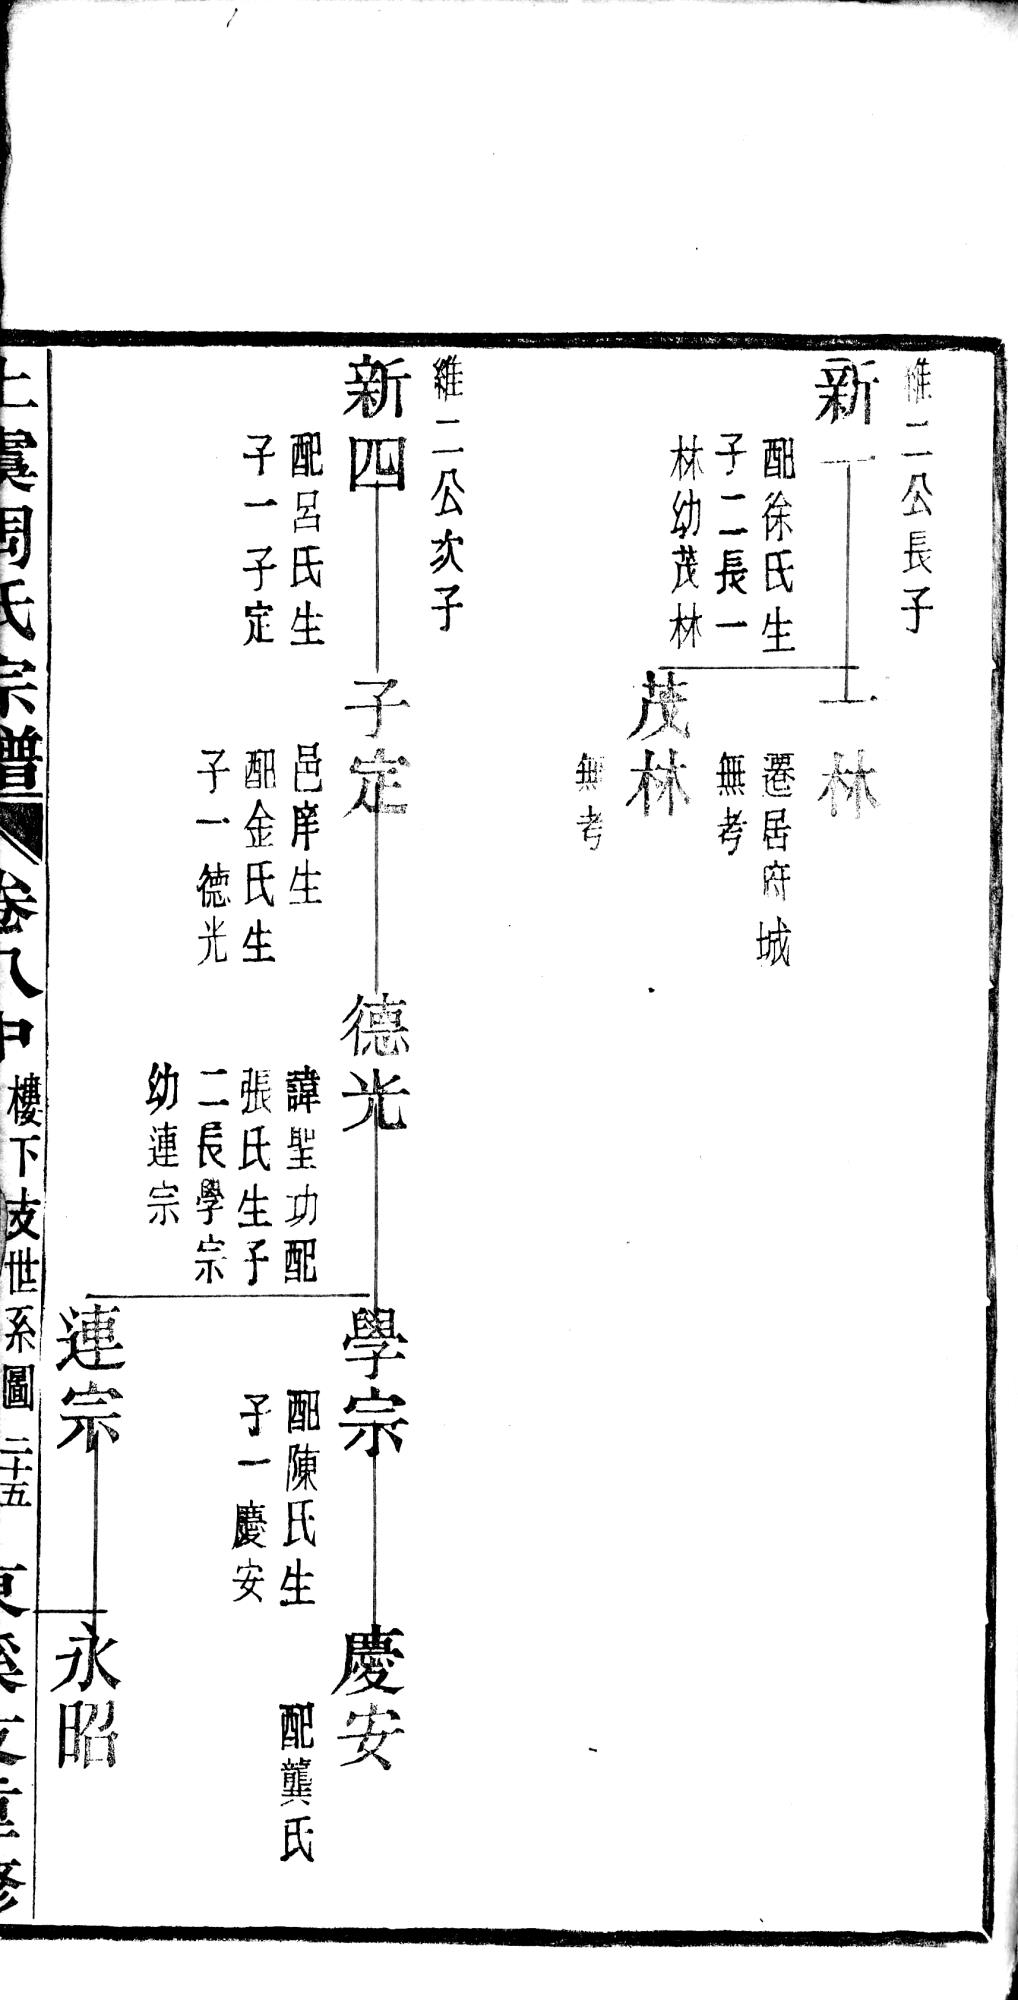 維二公長子
新一
配徐氏生
子二長一
林幼茂林
一林
遷居府城
無考
茂林
無考
維二公次子
新四
配呂氏生
子一子定
子定
邑庠生
配金氏生
子一德光
德光
諱聖功配
張氏生子
二長學宗
幼連宗
學宗
配陳氏生
子一慶安
慶安
配龔氏
連宗
永昭
上虞周氏宗譜 卷八中 樓下支世系圖 二十五 東溪支重修